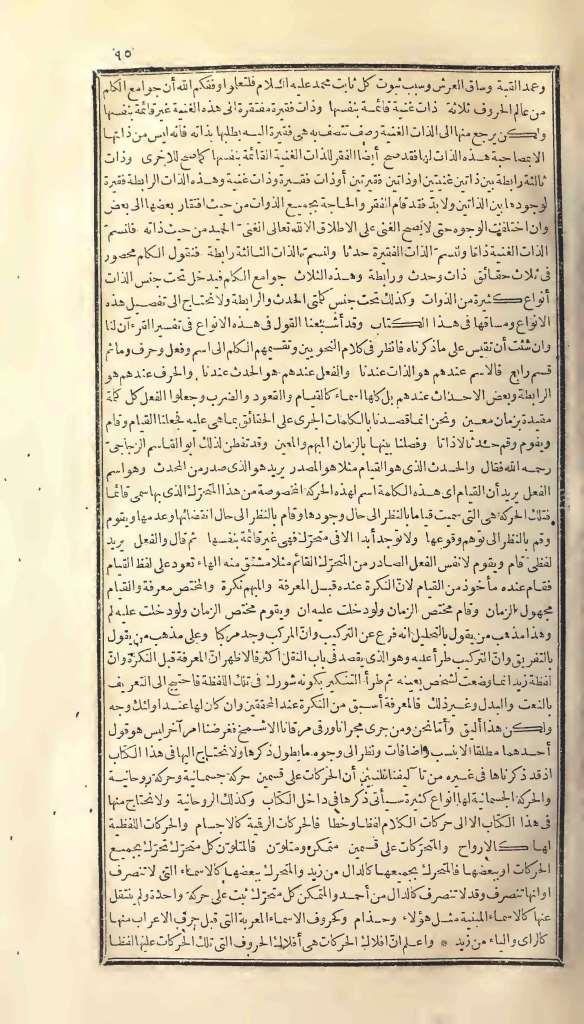 ٩٥
وعمد القبة وساق العرش وسبب ثبوت كل ثابت محمد عليه السلام فلتعلموا وفقكم الله أن جوامع الكلم
من عالم الحروف ثلاثة ذات غنية قائمة بنفسها وذات فقيرة مفتقرة الى هذه الغنية غير قائمة بنفسها
ولكن يرجع منها الى الذات الغنية وصف تتصف به هي فقيرة اليه يطلبها بذاته فانه ليس من ذاتها
الا بمصاحبة هذه الذات لها فقد صح أيضا الفقر للذات الغنية القائمة بنفسها كما صح للاخرى وذات
ثالثة رابطة بين ذاتين غنيتين أو ذاتين فقيرتين أو ذات فقيرة وذات غنية وهذه الذات الرابطة فقيرة
لوجود هاتين الذاتين ولا بد فقد قام الفقر والحاجة بجميع الذوات من حيث افتقار بعضها الى بعض
وان اختلفت الوجوه حتى لا يصح الغنى على الاطلاق الا لله تعالى الغنى الحميد من حيث ذاته فلنسم
الذات الغنية ذاتا ولنسم الذات الفقيرة حدثا ولنسم الذات الثالثة رابطة فنقول الكلم محصور
فى ثلاث حقائق ذات وحدث ورابطة وهذه الثلاث جوامع الكلم فيدخل تحت جنس الذات
أنواع كثيرة من الذوات وكذلك تحت جنس كلمتى الحدث والرابطة ولا نحتاج الى تفصيل هذه
الانواع ومساقها فى هذا الكتاب وقد أشبعنا القول فى هذه الانواع فى تفسير القرءان لنا
وان شئت أن تقيس على ما ذكرناه فانظر فى كلام النحويين وتقسيمهم الكلم الى اسم وفعل وحرف وما ثم
قسم رابع فالاسم عندهم هو الذات عندنا والفعل عندهم هو الحدث عندنا والحرف عندهم هو
الرابطة وبعض الاحداث عندهم بل كلها اسماء كالقيام والقعود والضرب وجعلوا الفعل كل كلمة
مقيدة بزمان معين ونحن انما قصدنا بالكلمات الجرى على الحقائق بما هى عليه فجعلنا القيام وقام
ويقوم وقم حدثا لا ذاتا وفصلنا بينها بالزمان المبهم والمعين وقد تفطن لذلك ابو القاسم الزجاجى
رحمه الله فقال والحدث الذى هو القيام مثلا هو المصدر يريد هو الذى صدر من المحدث وهو اسم
الفعل يريد أن القيام اى هذه الكلمة اسم لهذه الحركة المخصوصة من هذا المتحرك الذى بها سمى قائما
فتلك الحركة هى التى سميت قياما بالنظر الى حال وجودها وقام بالنظر الى حال انقضائها وعدمها ويقوم
وقم بالنظر الى توهم وقوعها ولا توجد أبدا الا فى متحرك فهى غير قائمة بنفسها ثم قال والفعل يريد
لفظى قام ويقوم لا نفس الفعل الصادر من المتحرك القائم مثلا مشتق منه الهاء تعود على لفظ القيام
فقام عنده مأخوذ من القيام لان النكرة عنده قبل المعرفة والمبهم نكرة والمختص معرفة والقيام
مجهول الزمان وقام مختص الزمان ولو دخلت عليه ان ويقوم مختص الزمان ولو دخلت عليه لم
وهذا مذهب من يقول بالتحليل انه فرع عن التركيب وان المركب وجد مركبا وعلى مذهب من يقول
بالتفريق وان التركيب طرأ عليه وهو الذى يقصد فى باب النقل اكثر فالاظهر ان المعرفة قبل النكرة وان
لفظة زيد انما وضعت لشخص بعينه ثم طرأ التنكير بكونه شورك فى تلك اللفظة فاحتيج الى التعريف
بالنعت والبدل وغير ذلك فالمعرفة أسبق من النكرة عند المحققين وان كان لها عند اولئك وجه
ولكن هذا أليق وأما نحن ومن جرى مجرانا ورقى مرقانا الاشمخ فغرضنا امر آخر ليس هو قول
أحدهما مطلقا الا بنسب واضافات ونظر الى وجوه ما يطول ذكرها ولا نحتاج اليها فى هذا الكتاب
اذ قد ذكرناها فى غيره من تآليفنا فلنبين أن الحركات على قسمين حركة جسمانية وحركة روحانية
والحركة الجسمانية لها أنواع كثيرة سيأتى ذكرها فى داخل الكتاب وكذلك الروحانية ولا نحتاج منها
فى هذا الكتاب الا الى حركات الكلام لفظا وخطا فالحركات الرقمية كالاجسام والحركات اللفظية
لها كالارواح والمتحركات على قسمين متمكن ومتلون فالمتلون كل متحرك تحرك بجميع
الحركات او ببعضها فالمتحرك بجميعها كالدال من زيد والمتحرك ببعضها كالاسماء التى لا تنصرف
او انها تنصرف وقد لا تنصرف كالدال من أحمد والمتمكن كل متحرك ثبت على حركة واحدة ولم ينتقل
عنها كالاسماء المبنية مثل هؤلاء وحذام وكحروف الاسماء المعربة التى قبل حرف الاعراب منها
كالزاى والياء من زيد * واعلم ان افلاك الحركات هى أفلاك الحروف التى تلك الحركات عليها لفظا